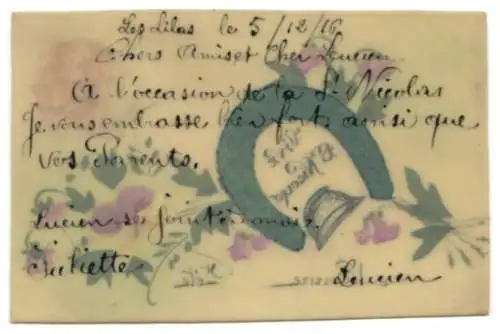 Les Lilas le 5/12/16
Chers Amis et Cher Lucien
A l'occasion de la St Nicolas
Je vous embrasse bien fort ainsi que
vos Parents.
Lucien se joint à moi.
Juliette
Lucien